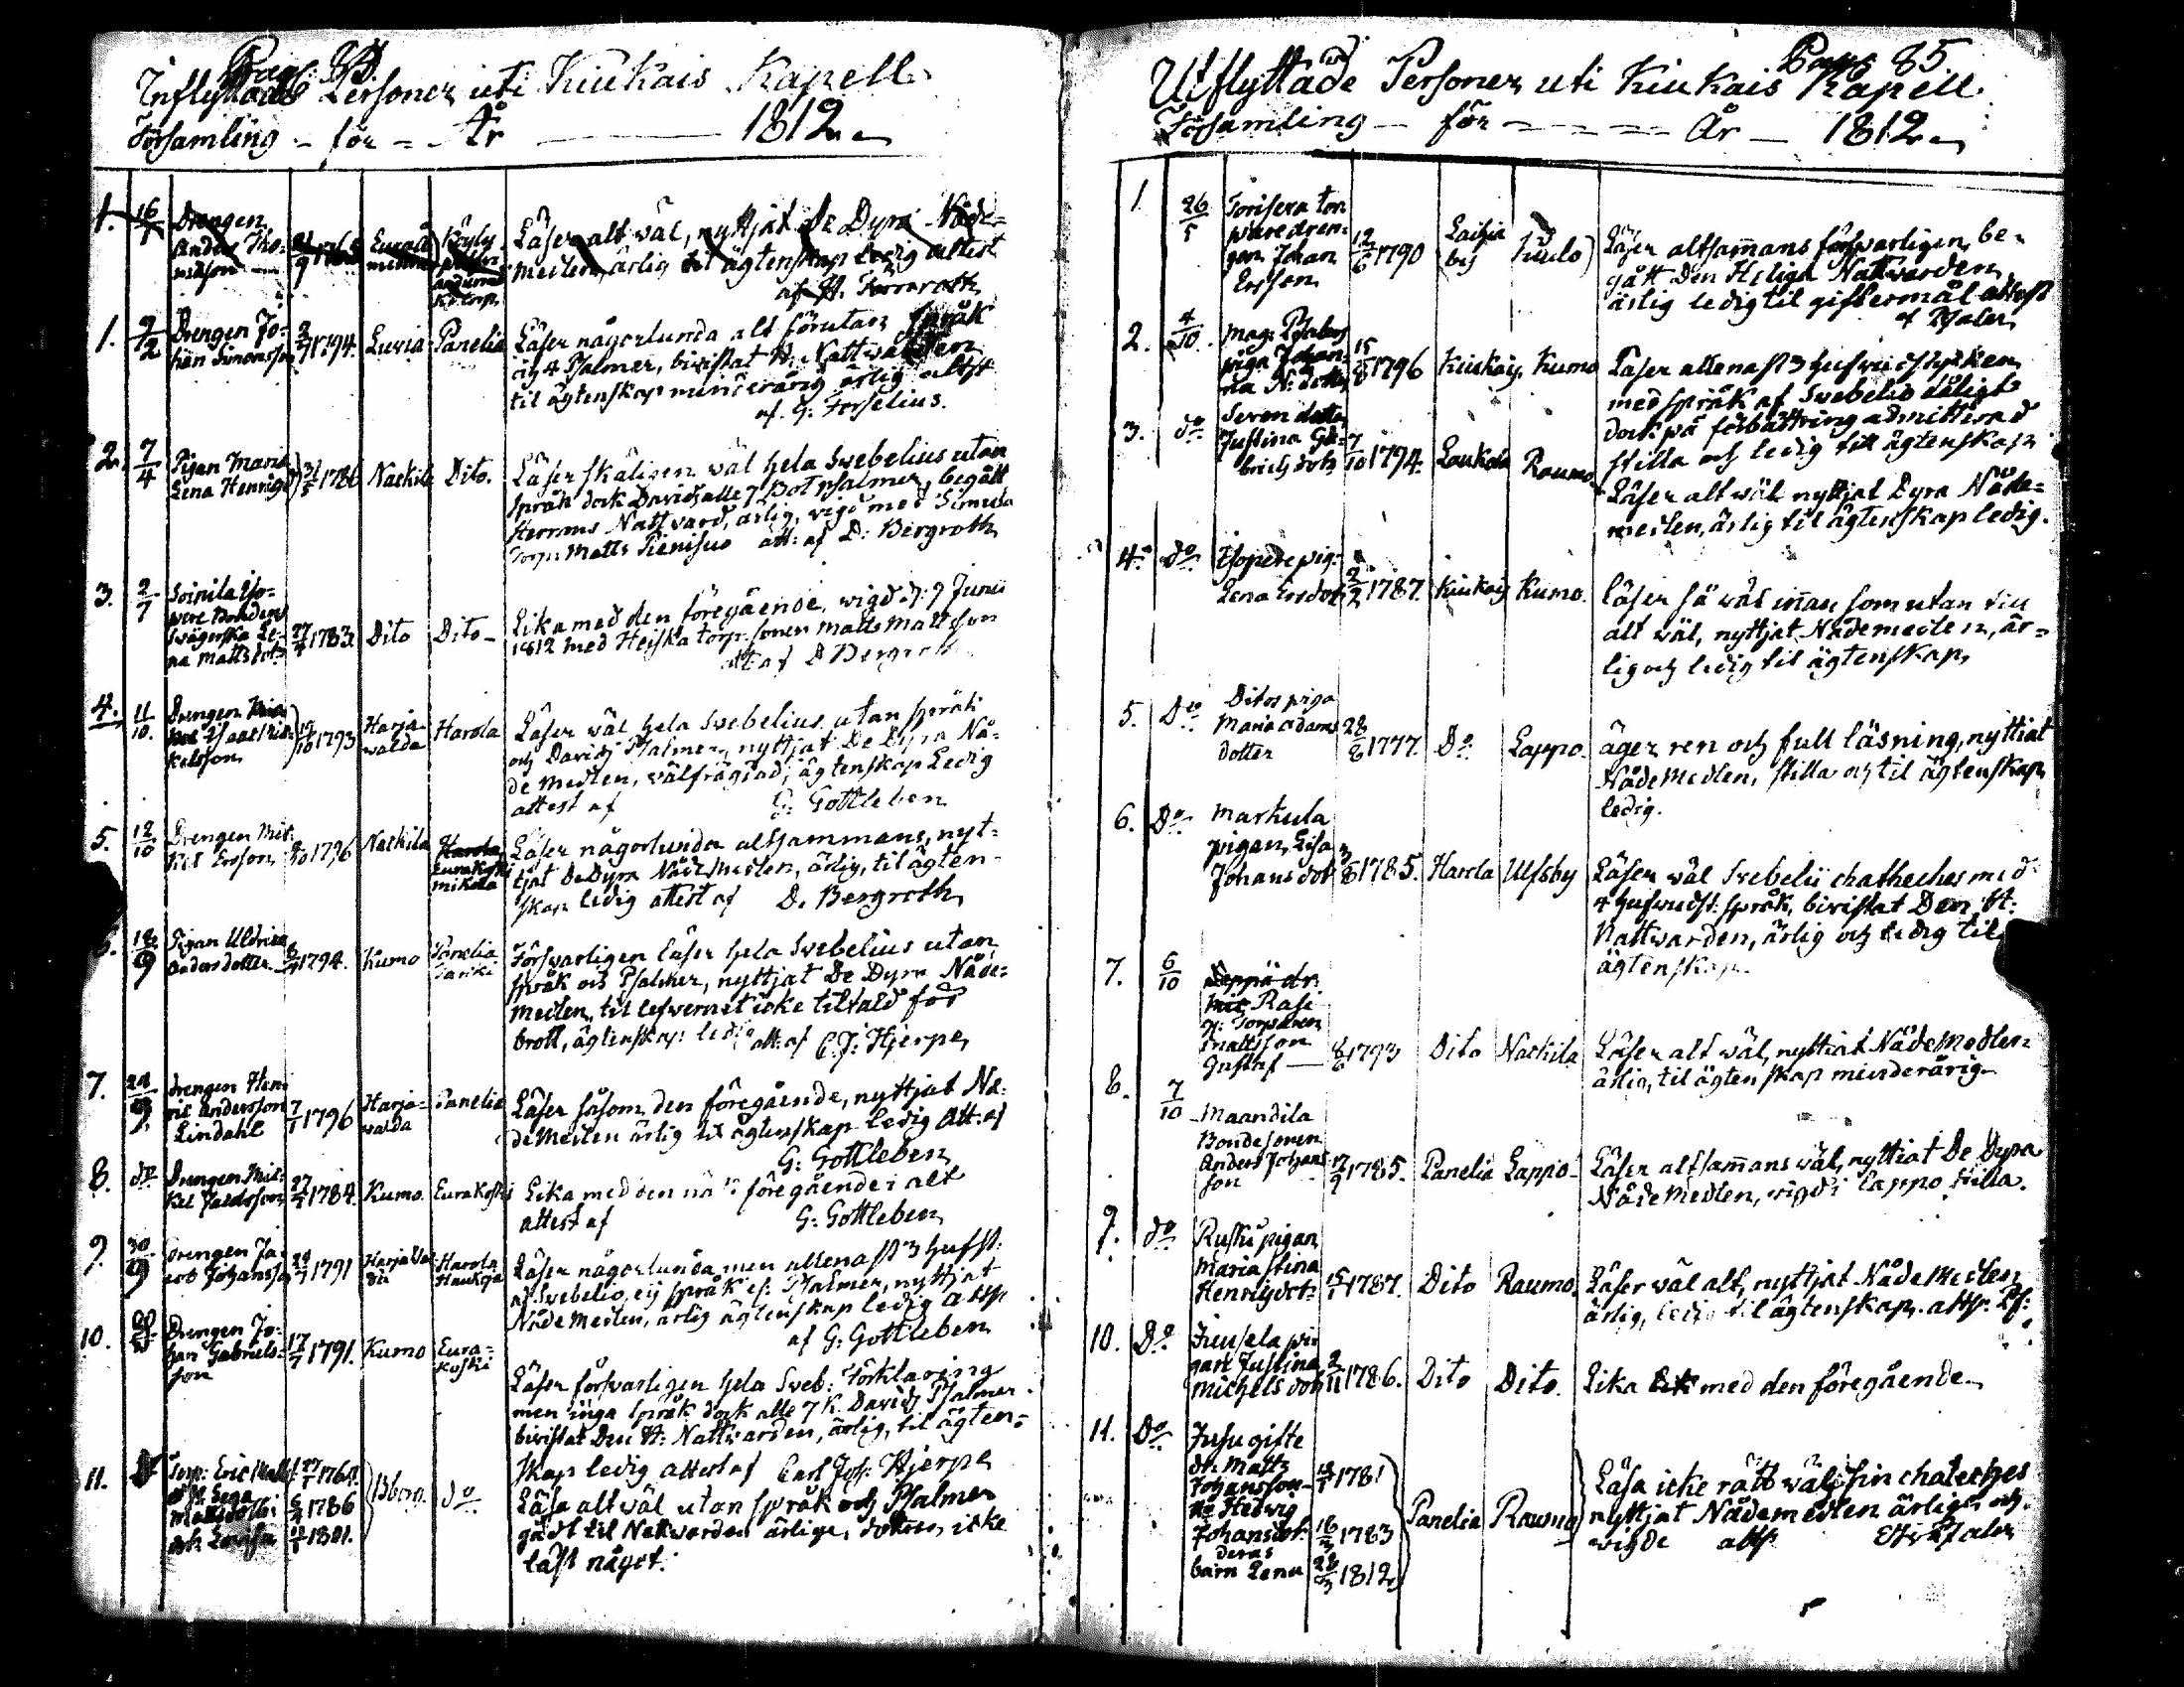 Inflyttade Personer uti Kiukais Kapell
Församling - för - - År 1812
1. 16/1 Drengen
Anders Tho-
masson
Läser alt wäl, nyttjat De Dyra Nåde-
medlen, ärlig til ägtenskap Ledig attest
1. 9/2 Drengen Jo-
han Simonsson 1794. Luvia Panelia
Läser någorlunda alt förutan språk
och 4 Psalmer, biwistat H. Nattwarden
til ägtenskap minderårig ärlig attst
af G: Forselius.
2. 7/4 Pigan Maria
Lena Henrigsd 1786 Nackila Dito.
Läser skäligen wäl hela Swebelius utan
språk dock Davids alle 7 Botpsalmer, begått
Herrans Nattvard, ärlig, vigd med Simula
Torp. Matts Pienisuo att: af D: Bergroth
3. 2/7 Soinila Iso-
pere Bondens
Swägerska Le-
na Mattsdotr 27/4 1783 Dito Dito
Lika med den föregående, wigd d. 9 Junii
1812 med Heiska torp. sonen Matts Mattsson
att af D Bergroth
4. 11/10. Drengen
Isaac Mic-
kelsson 1793 Harja-
walda Harola
Läser wäl hela Swebelius utan språk
och Davids Psalmer, nyttjat De Dyra Nå-
de Medlen, wälfrägdad, ägtenskap Ledig
attest af G: Gottleben
5. 12/10 Drengen Mic-
kel Ersson 1796 Nackila Harola
Eurakoski
Mikola
Läser någorlunda altsammans, nyt-
tjat De Dyra NådeMedlen, ärlig, til ägten-
skap ledig attest af D. Bergroth
6. 18/9 Pigan Uldrica
Anders dotter 1794. Kumo Panelia
Försvarligen läser hela Swebelius utan
språk och Psalmer, nyttjat De Dyra Nåde-
medlen, til lefvernet icke tiltald för
brott, ägtenskap: ledig att: af C. J: Hjerpe
7. 29/9 Drengen Hen-
ric Andersson
Lindahl 7/1 1796 Harja-
walda Panelia
Läser såsom den föregående, nyttjat Nå-
de Medlen ärlig til ägtenskap ledig Att: af
G: Gottleben
8. do Drengen Mic-
kel Jacobsson 27/7 1784. Kumo. Eurakoski
Lika med den näst föregående i alt
attest af G: Gottleben
9. 30/9 Drengen Ja-
cob Johansson 1791 Harjawal-
da Harola
Haukoja
Läser någorlunda men allenast 3 hufst:
af Swebelio, ej språk ej: Psalmer, nyttjat
Nåde Medlen, ärlig ägtenskap ledig attst
af G: Gottleben
10. Drengen Jo-
han Gabriels-
son 17/7 1791. Kumo Eura-
koski
Läser försvarligen hela Sveb: Förklaring
men inga språk dock alle 7 K. Davids Psalmer.
biwistat Den H: Nattwarden, ärlig, til ägten-
skap ledig attest af Carl Joh: Hjerpe
11. Torp: Eric Matts: 1764
1786
1801.
Bborg. do
Läsa alt wäl utan språk och Psalmer
gådt til Nattwarden ärlige, dottren icke
läst något.
Page 85.
Utflyttade Personer uti Kiukais Kapell
Församling - för - - - - År - 1812
1. 26/5 Torisera tor-
pare dren-
gen Johan
Ersson 12/6 1790 Laihia
by
Läser altsammans försvarligen, be-
gått Den Heliga Nattwarden,
ärlig ledig til giftermål attest
af Psaler
2. 4/10. Mag. Psalers
piga Johan-
na N: dotter 15/8 1796 Kiukais. Kumo
Läser allenast 3 hufwudstycken
med språk af Swebelio dåligt
dock på förbättring admitterad
stilla och ledig till ägtenskap
3. do
Justina Ga-
briels dotr 7/10 1794. Laukola Raumo
Läser alt wäl nyttjat Dyra Nåde-
medlen, ärlig til ägtenskap ledig.
4. do Isopere pig.
Lena Ersdotr 2/2 1787. Kiukais Kumo.
Läser så wäl innan som utan till
alt wäl, nyttjat Nådemedlen, är-
lig och ledig til ägtenskap,
5. Do Ditos piga
Maria Adams
dotter 28/8 1777. Do Lappo.
äger ren och full läsning, nyttjat
NådeMedlen, stilla och til ägtenskap
ledig.
6. Do Markula
pigan, Lisa
Johansdotr 1785. Harola Ulfsby
Läser wäl Svebelii chatheches med
4 hufwudst: språk, biwistat Den H:
Nattwarden, ärlig och ledig til
ägtenskap.
7. 6/10 Rasi
Torparen
Mattsson
Gustaf 1793 Dito Nackila
Läser alt wäl, nyttjat NådeMedlen
ärlig, til ägtenskap minderårig
8. 7/10 Maandila
Bondesonen
Anders Johans
son 1785. Panelia Lappo
Läser altsammans wäl, nyttiat De Dyra
Nåde Medlen, wigd i Lappo, stilla.
9. do Ruski pigan
Maria Stina
Henrigsdotr 15/1 1787. Dito Raumo.
Läser wäl alt, nyttjat NådeMedlen
ärlig, ledig til ägtenskap. attst. Ps:
10. Do
gan Justina
Michelsdotr 2/11 1786. Dito Dito.
Lika med den föregående
11. Do Jusu gifte
dr. Matts
Johansson 1781
Hedwig
Johansdotr 16/2 1783
deras
barn Lena 28/3 1812
Panelia Raumo
Läsa icke rätt wäl sin chateches
nyttjat Nådemedlen ärlige och
wigde attst Psaler